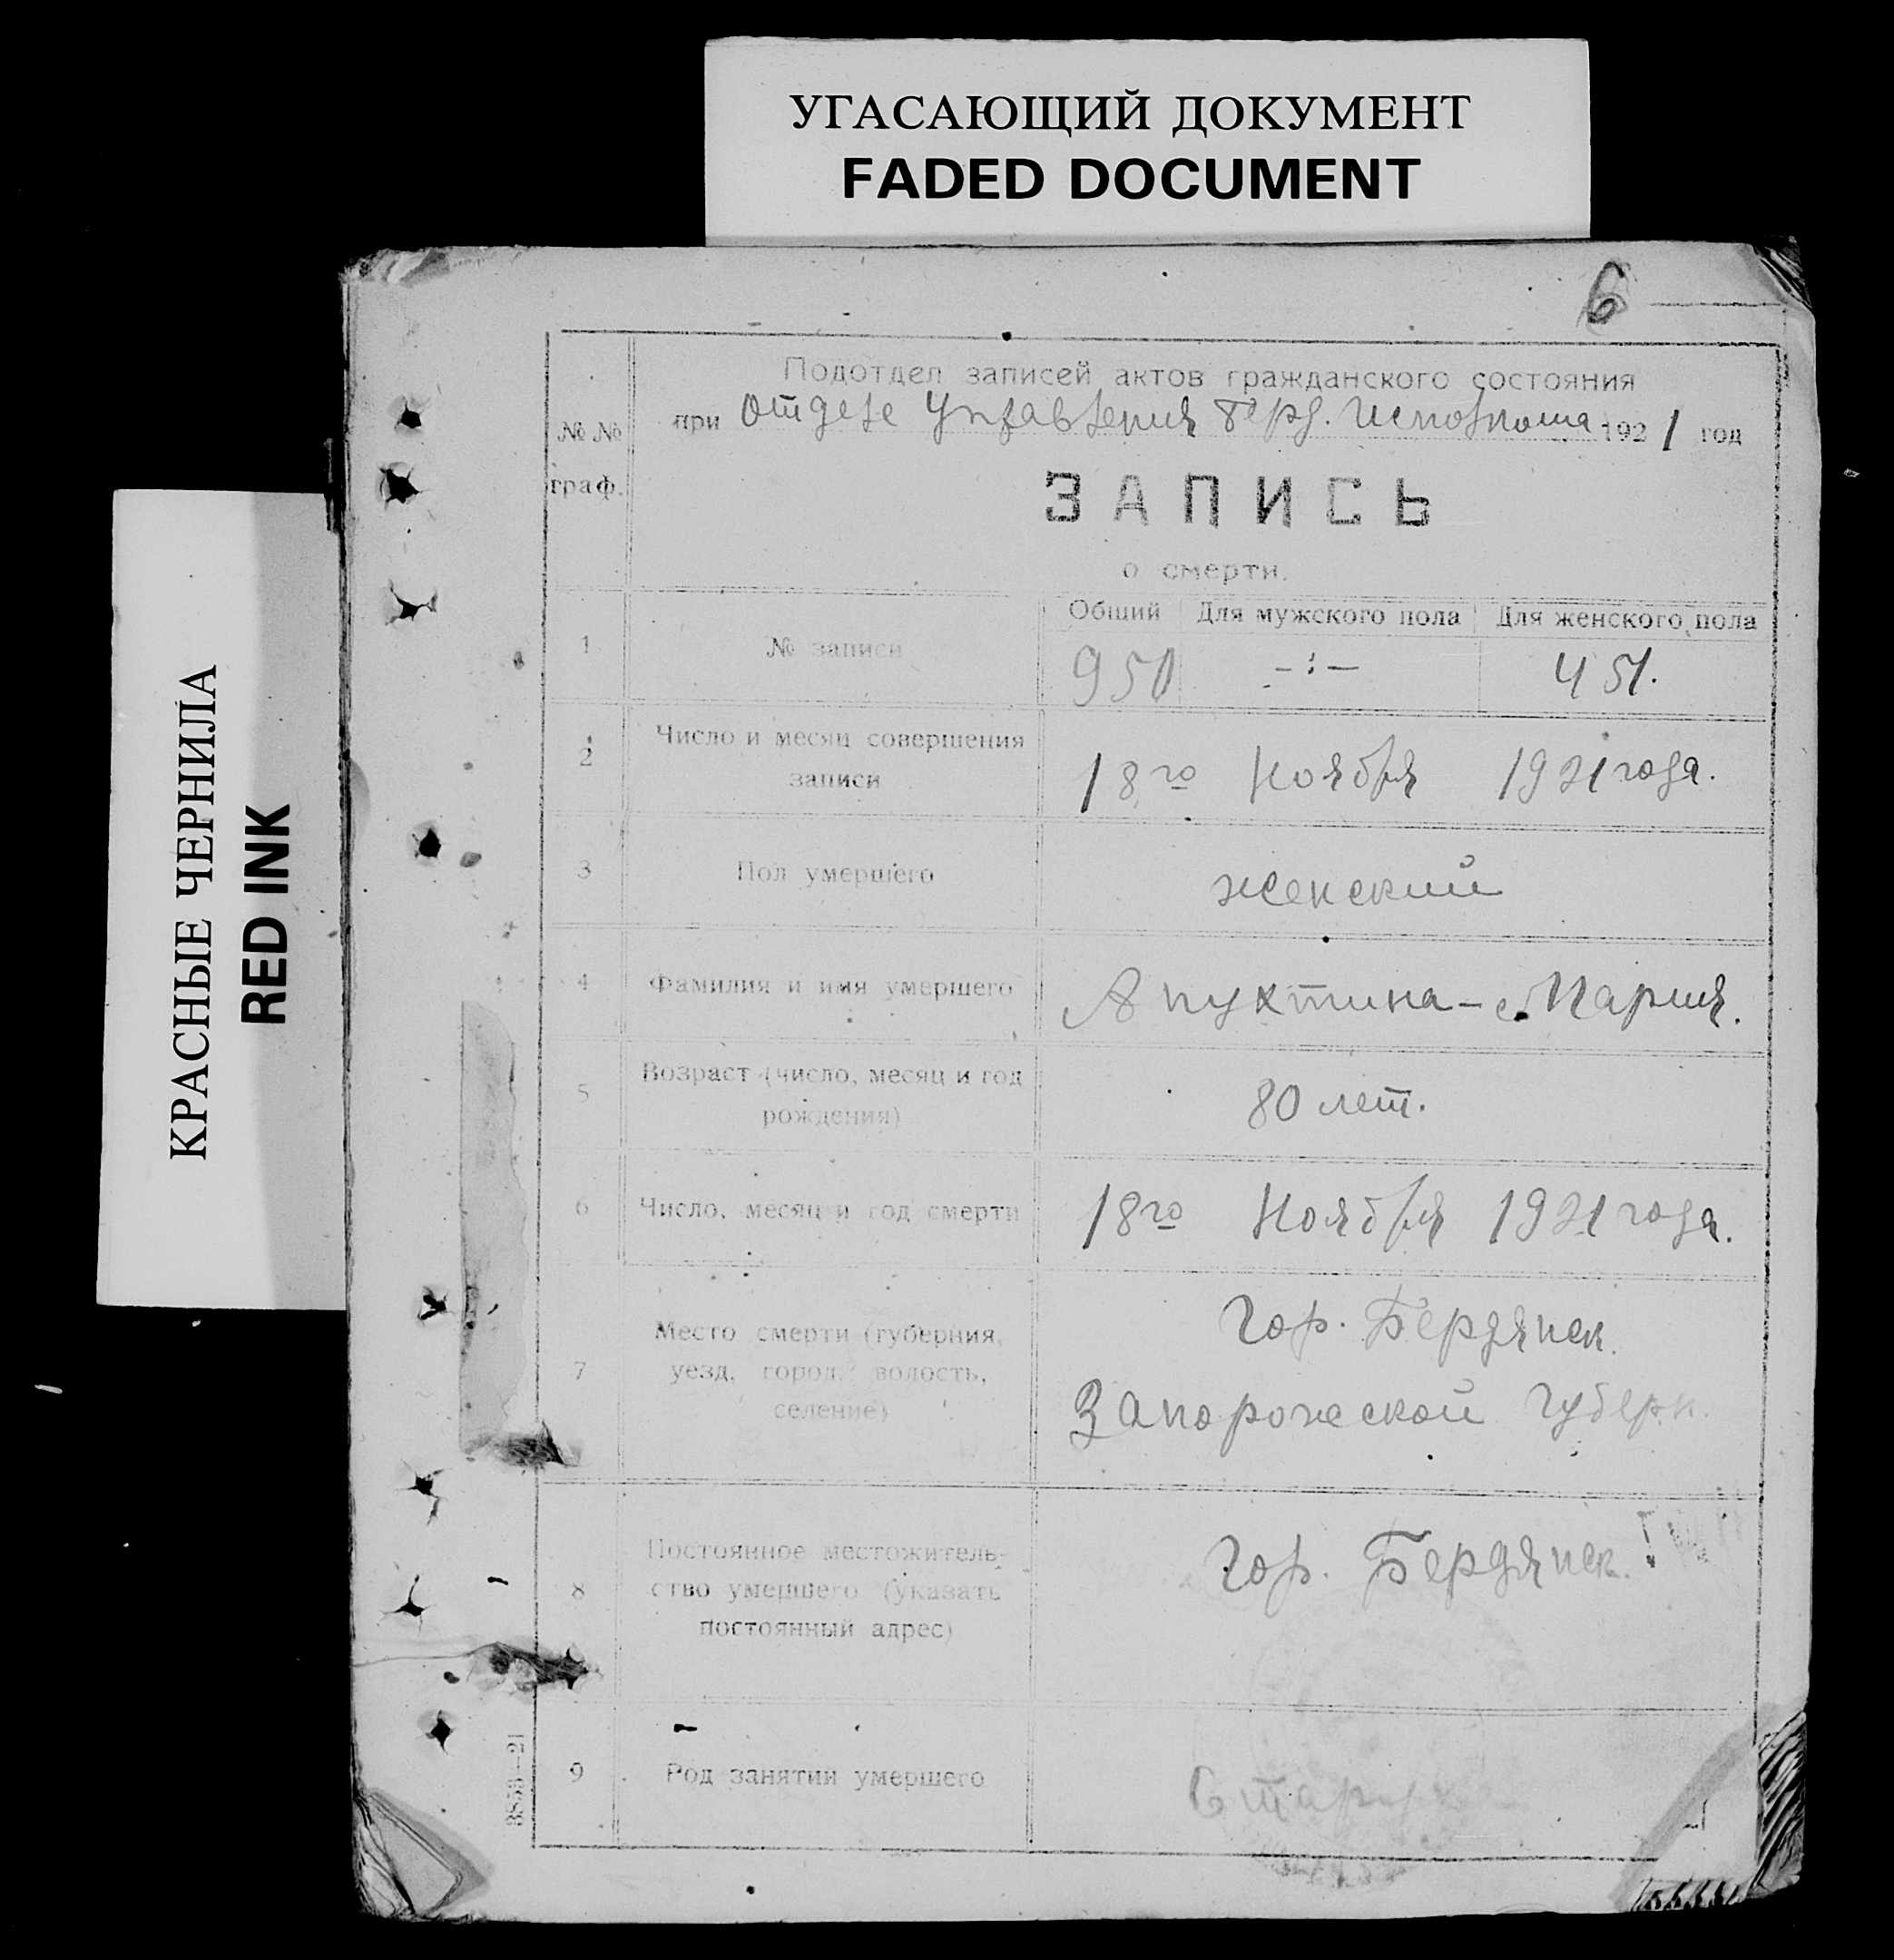 УГАСАЮЩИЙ ДОКУМЕНТ
FADED DOCUMENT
КРАСНЫЕ ЧЕРНИЛА
RED INK
6
Подотдел записей актов гражданского состояния
№ №
граф.
при Отделе Управления Берд. Исполкома 1921 год
ЗАПИСЬ
о смерти.
Общий Для мужского пола Для женского пола
1 № записи 950 -:- 451.
2 Число и месяц совершения
записи
18го Ноября 1921 года.
3 Пол умершего женский
4 Фамилия и имя умершего Апухтина - Мария.
5 Возраст (число, месяц и год
рождения)
80 лет.
6 Число, месяц и год смерти 18го Ноября 1921 года.
7 Место смерти (губерния,
уезд, город, волость,
селение)
Гор. Бердянск.
Запорожской Губерн.
8 Постоянное местожитель-
ство умершего (указать
постоянный адрес)
Гор. Бердянск.
9 Род занятий умершего Старуха
3855—21